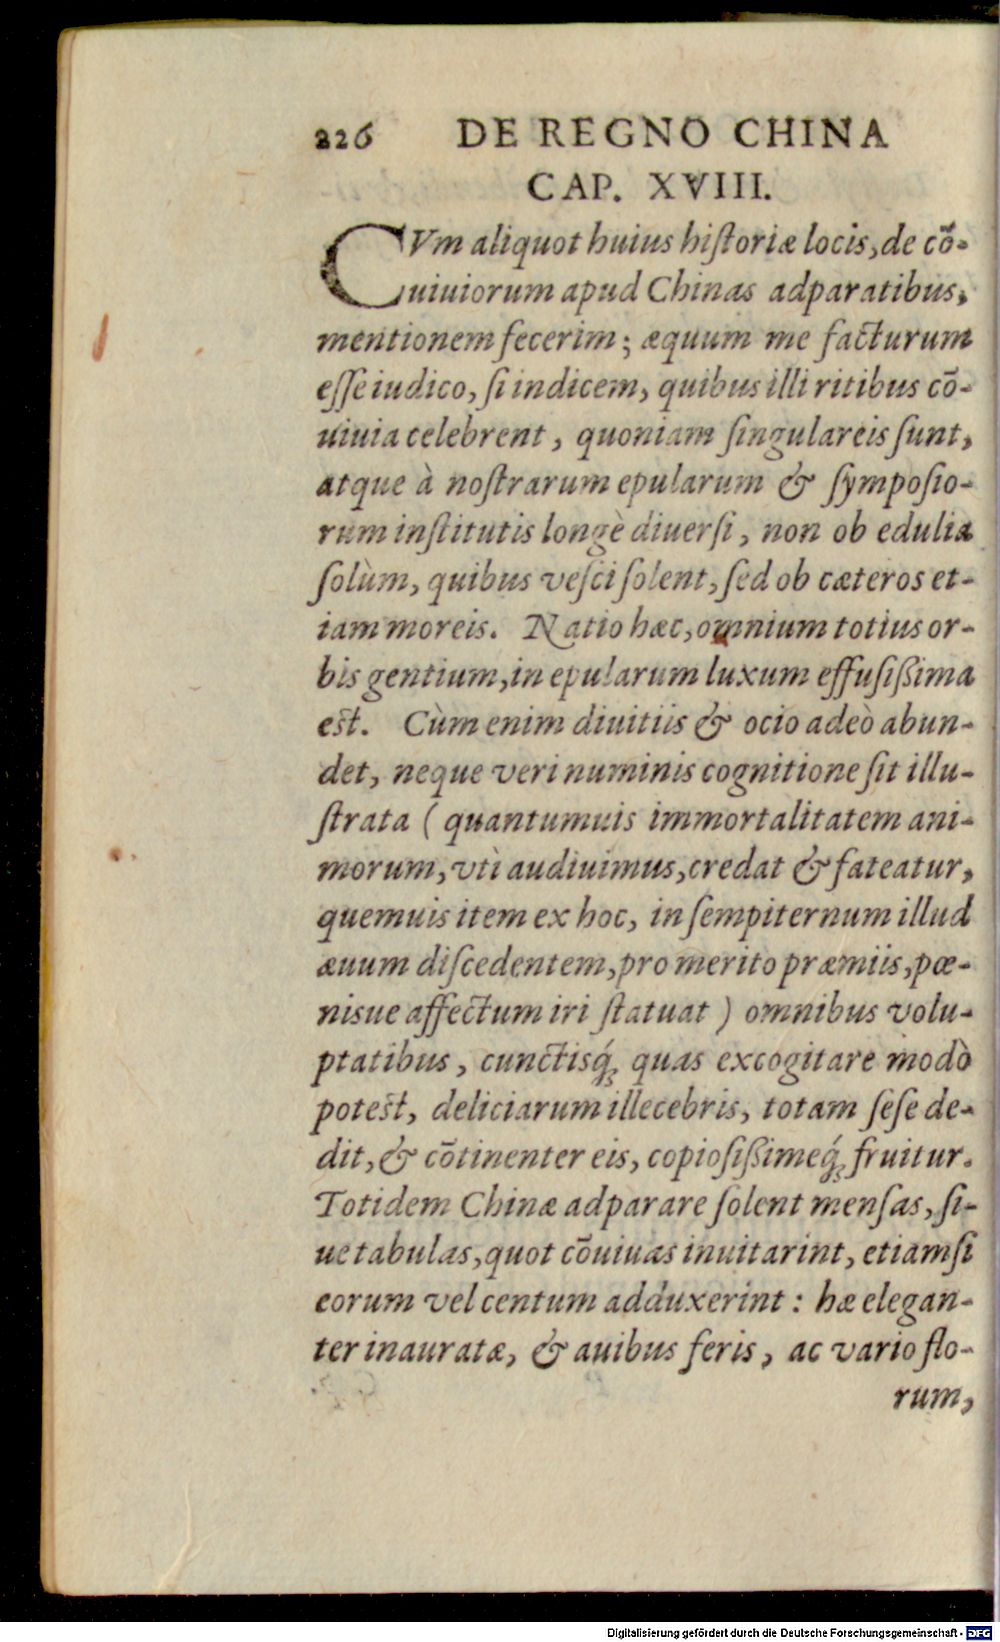 226 DE REGNO CHINA
CAP. XVIII.
CVm aliquot huius hiſtoriæ locis, de cõ-
uiuiorum apud Chinas adparatibus,
mentionem fecerim; æquum me facturum
eſſe iudico, ſi indicem, quibus illi ritibus cõ-
uiuia celebrent, quoniam ſingulareis ſunt,
atque à noſtrarum epularum & ſympoſio-
rum inſtitutis longè diuerſi, non ob edulia
ſolùm, quibus veſci ſolent, ſed ob cæteros et-
iam moreis. Natio hæc, omnium totius or-
bis gentium, in epularum luxum effuſiſſima
eſt. Cùm enim diuitiis & ocio adeò abun-
det, neque veri numinis cognitione ſit illu-
ſtrata (quantumuis immortalitatem ani-
morum, vtì audiuimus, credat & fateatur,
quemuis item ex hoc, in ſempiternum illud
æuum diſcedentem, pro merito præmiis, pœ-
nisue affectum iri ſtatuat) omnibus volu-
ptatibus, cunctisq́; quas excogitare modò
poteſt, deliciarum illecebris, totam ſeſe de-
dit, & cõtinenter eis, copioſiſſimeq́; fruitur.
Totidem Chinæ adparare ſolent menſas, ſi-
ue tabulas, quot cõuiuas inuitarint, etiamſi
eorum vel centum adduxerint: hæ elegan-
ter inauratæ, & auibus feris, ac vario flo-
rum,
Digitalisierung gefördert durch die Deutsche Forschungsgemeinschaft - DFG